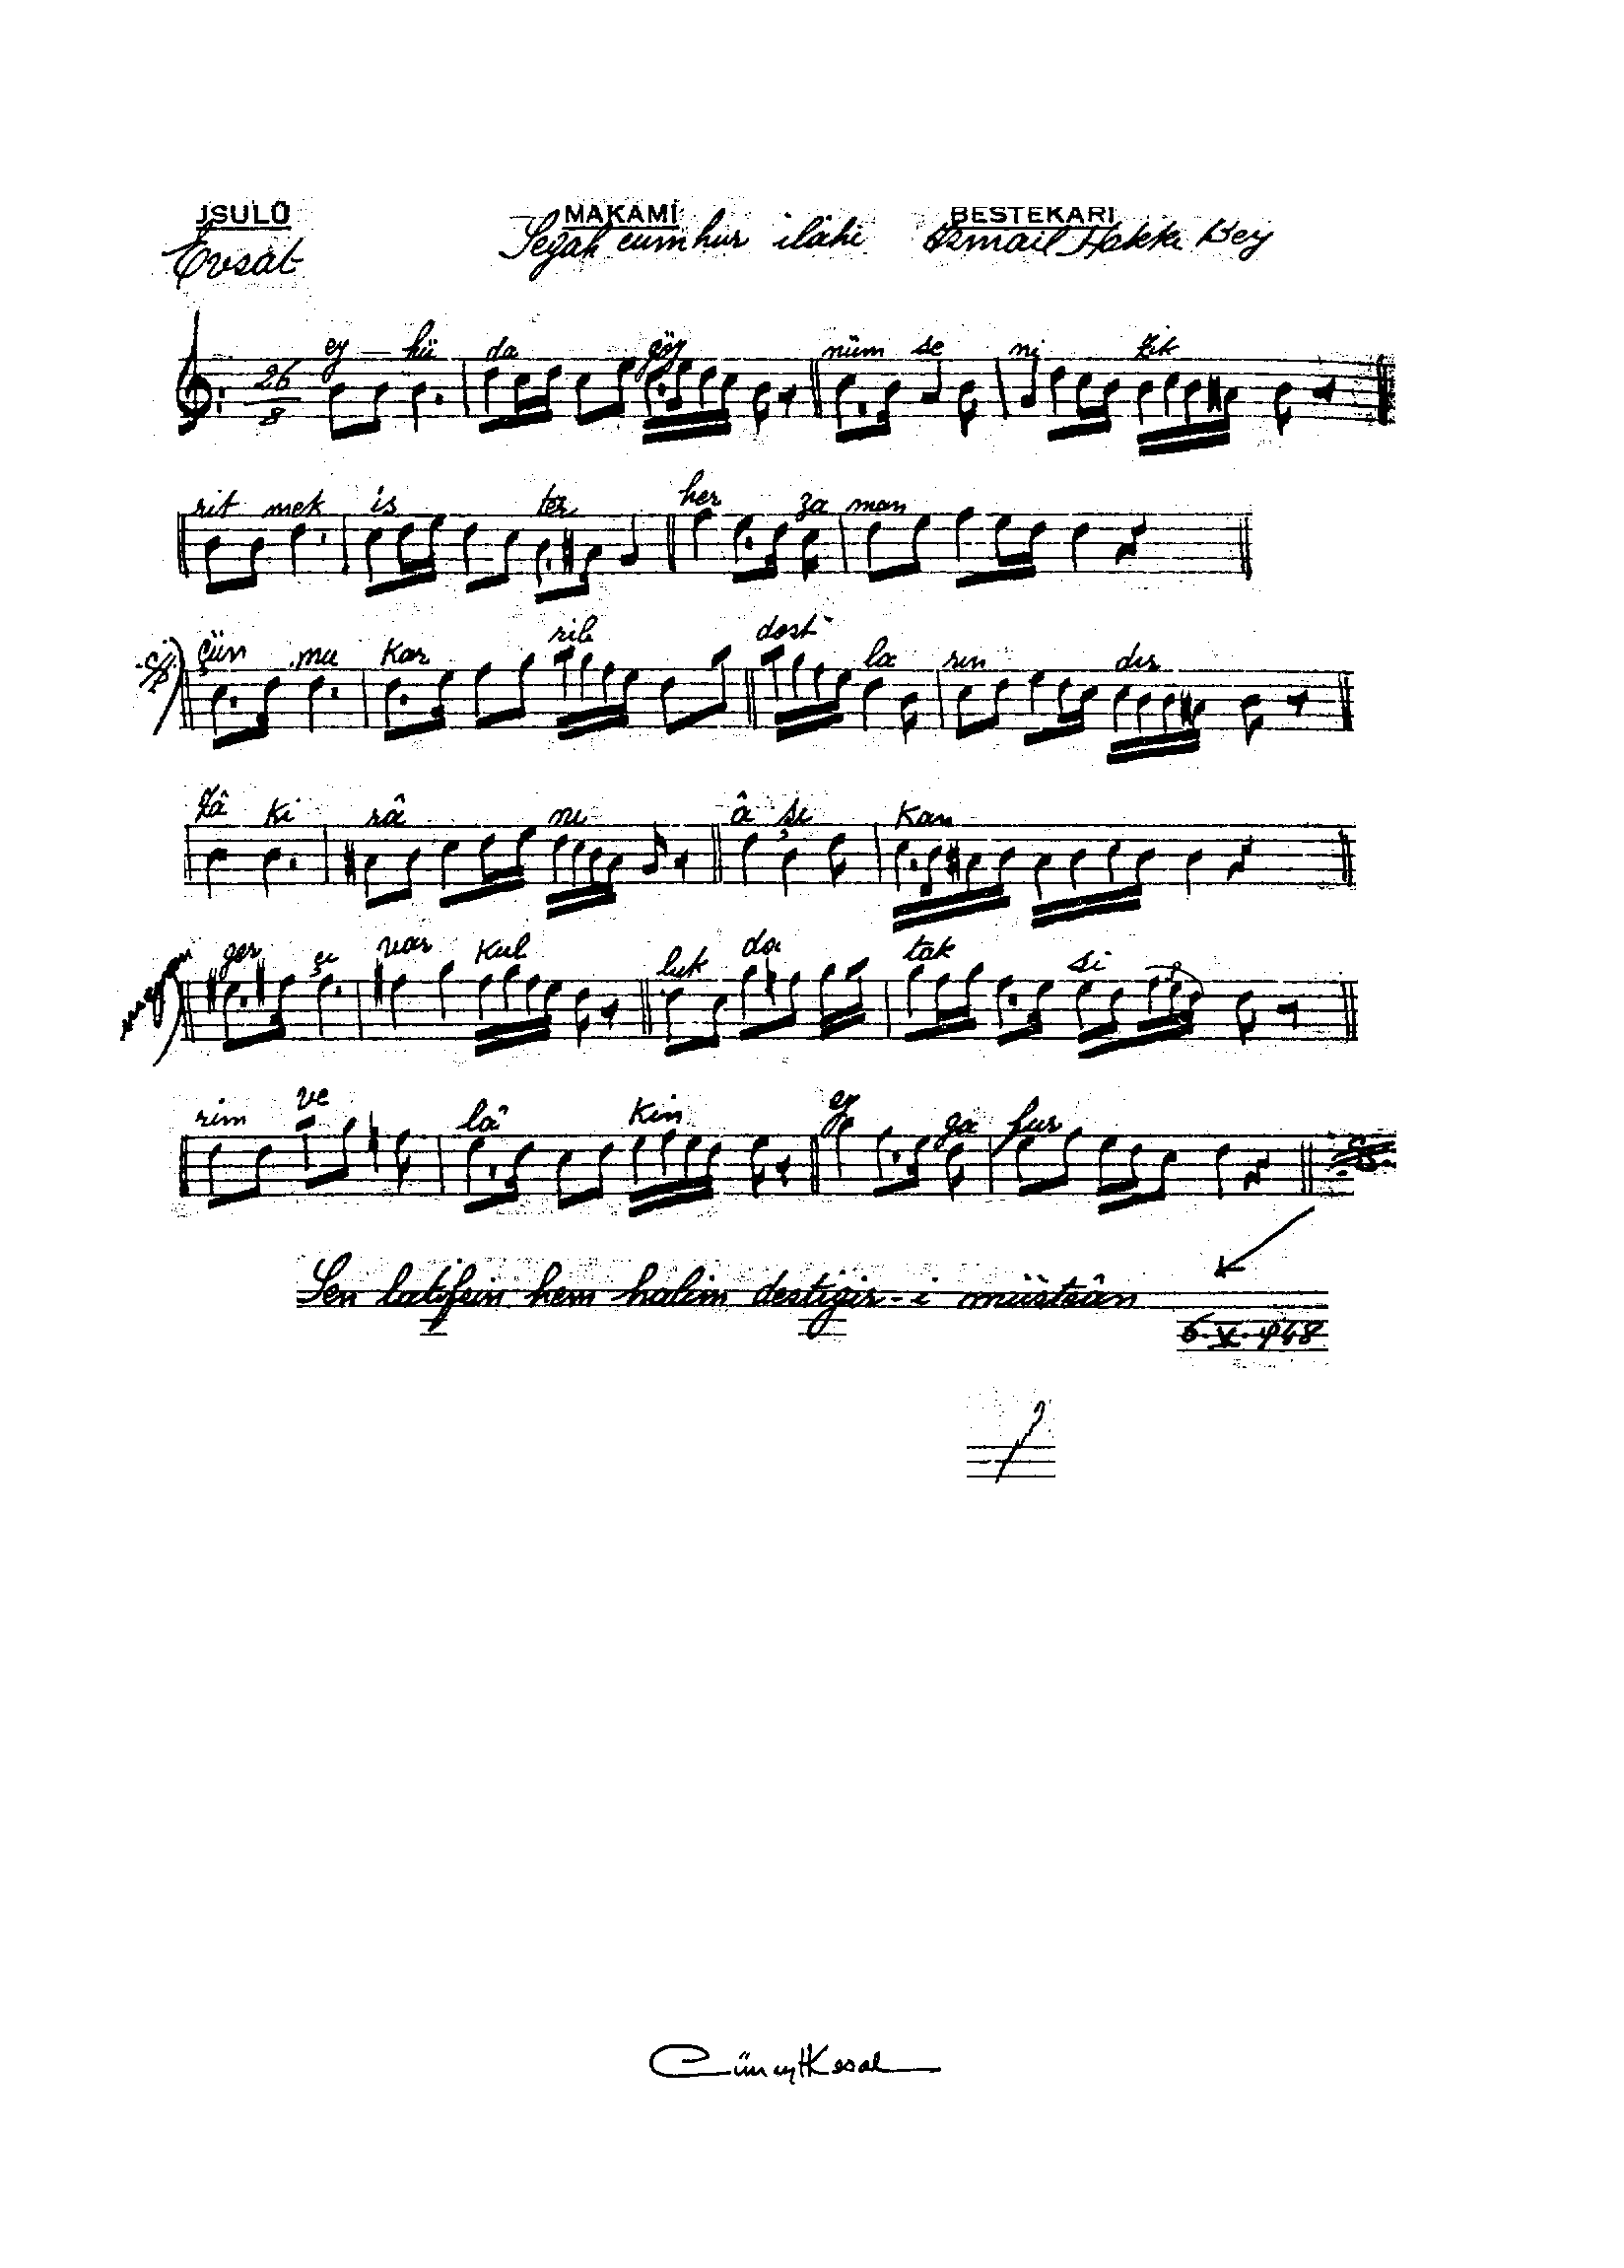 USULÜ MAKAMI BESTEKARI
Evsat Segâh cumhur ilâhi İsmail Hakkı Bey
26
8
ey hü da göy nüm se ni zik
rit mek is ter her za man
çün mu kar rib dost la rın dır
Zâ ki râ nı â şı kan
ger çi var kul luk da tak si
rim ve lâ kin ey ga fur
Sen latifsin hem halim destigir-i müsteân
6.V.948
Cüneyt Kosal